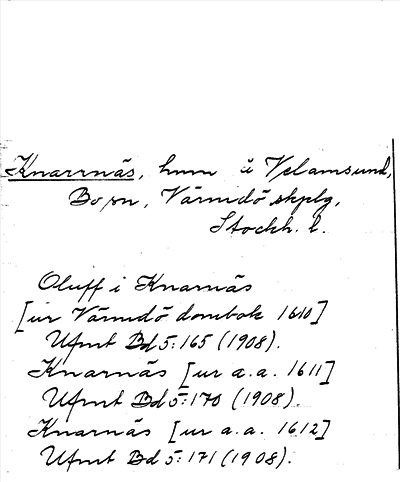 Knarrnäs, hmn i Velamsund,
Bo sn, Värmdö skplg,
Stockh. l.
Oluff i Knarnäs
[ur Värmdö dombok 1610]
Ufmt Bd 5:165 (1908).
Knarnäs [ur a.a. 1611]
Ufmt Bd 5:170 (1908).
Knarnäs [ur a.a. 1612]
Ufmt Bd 5:171 (1908).